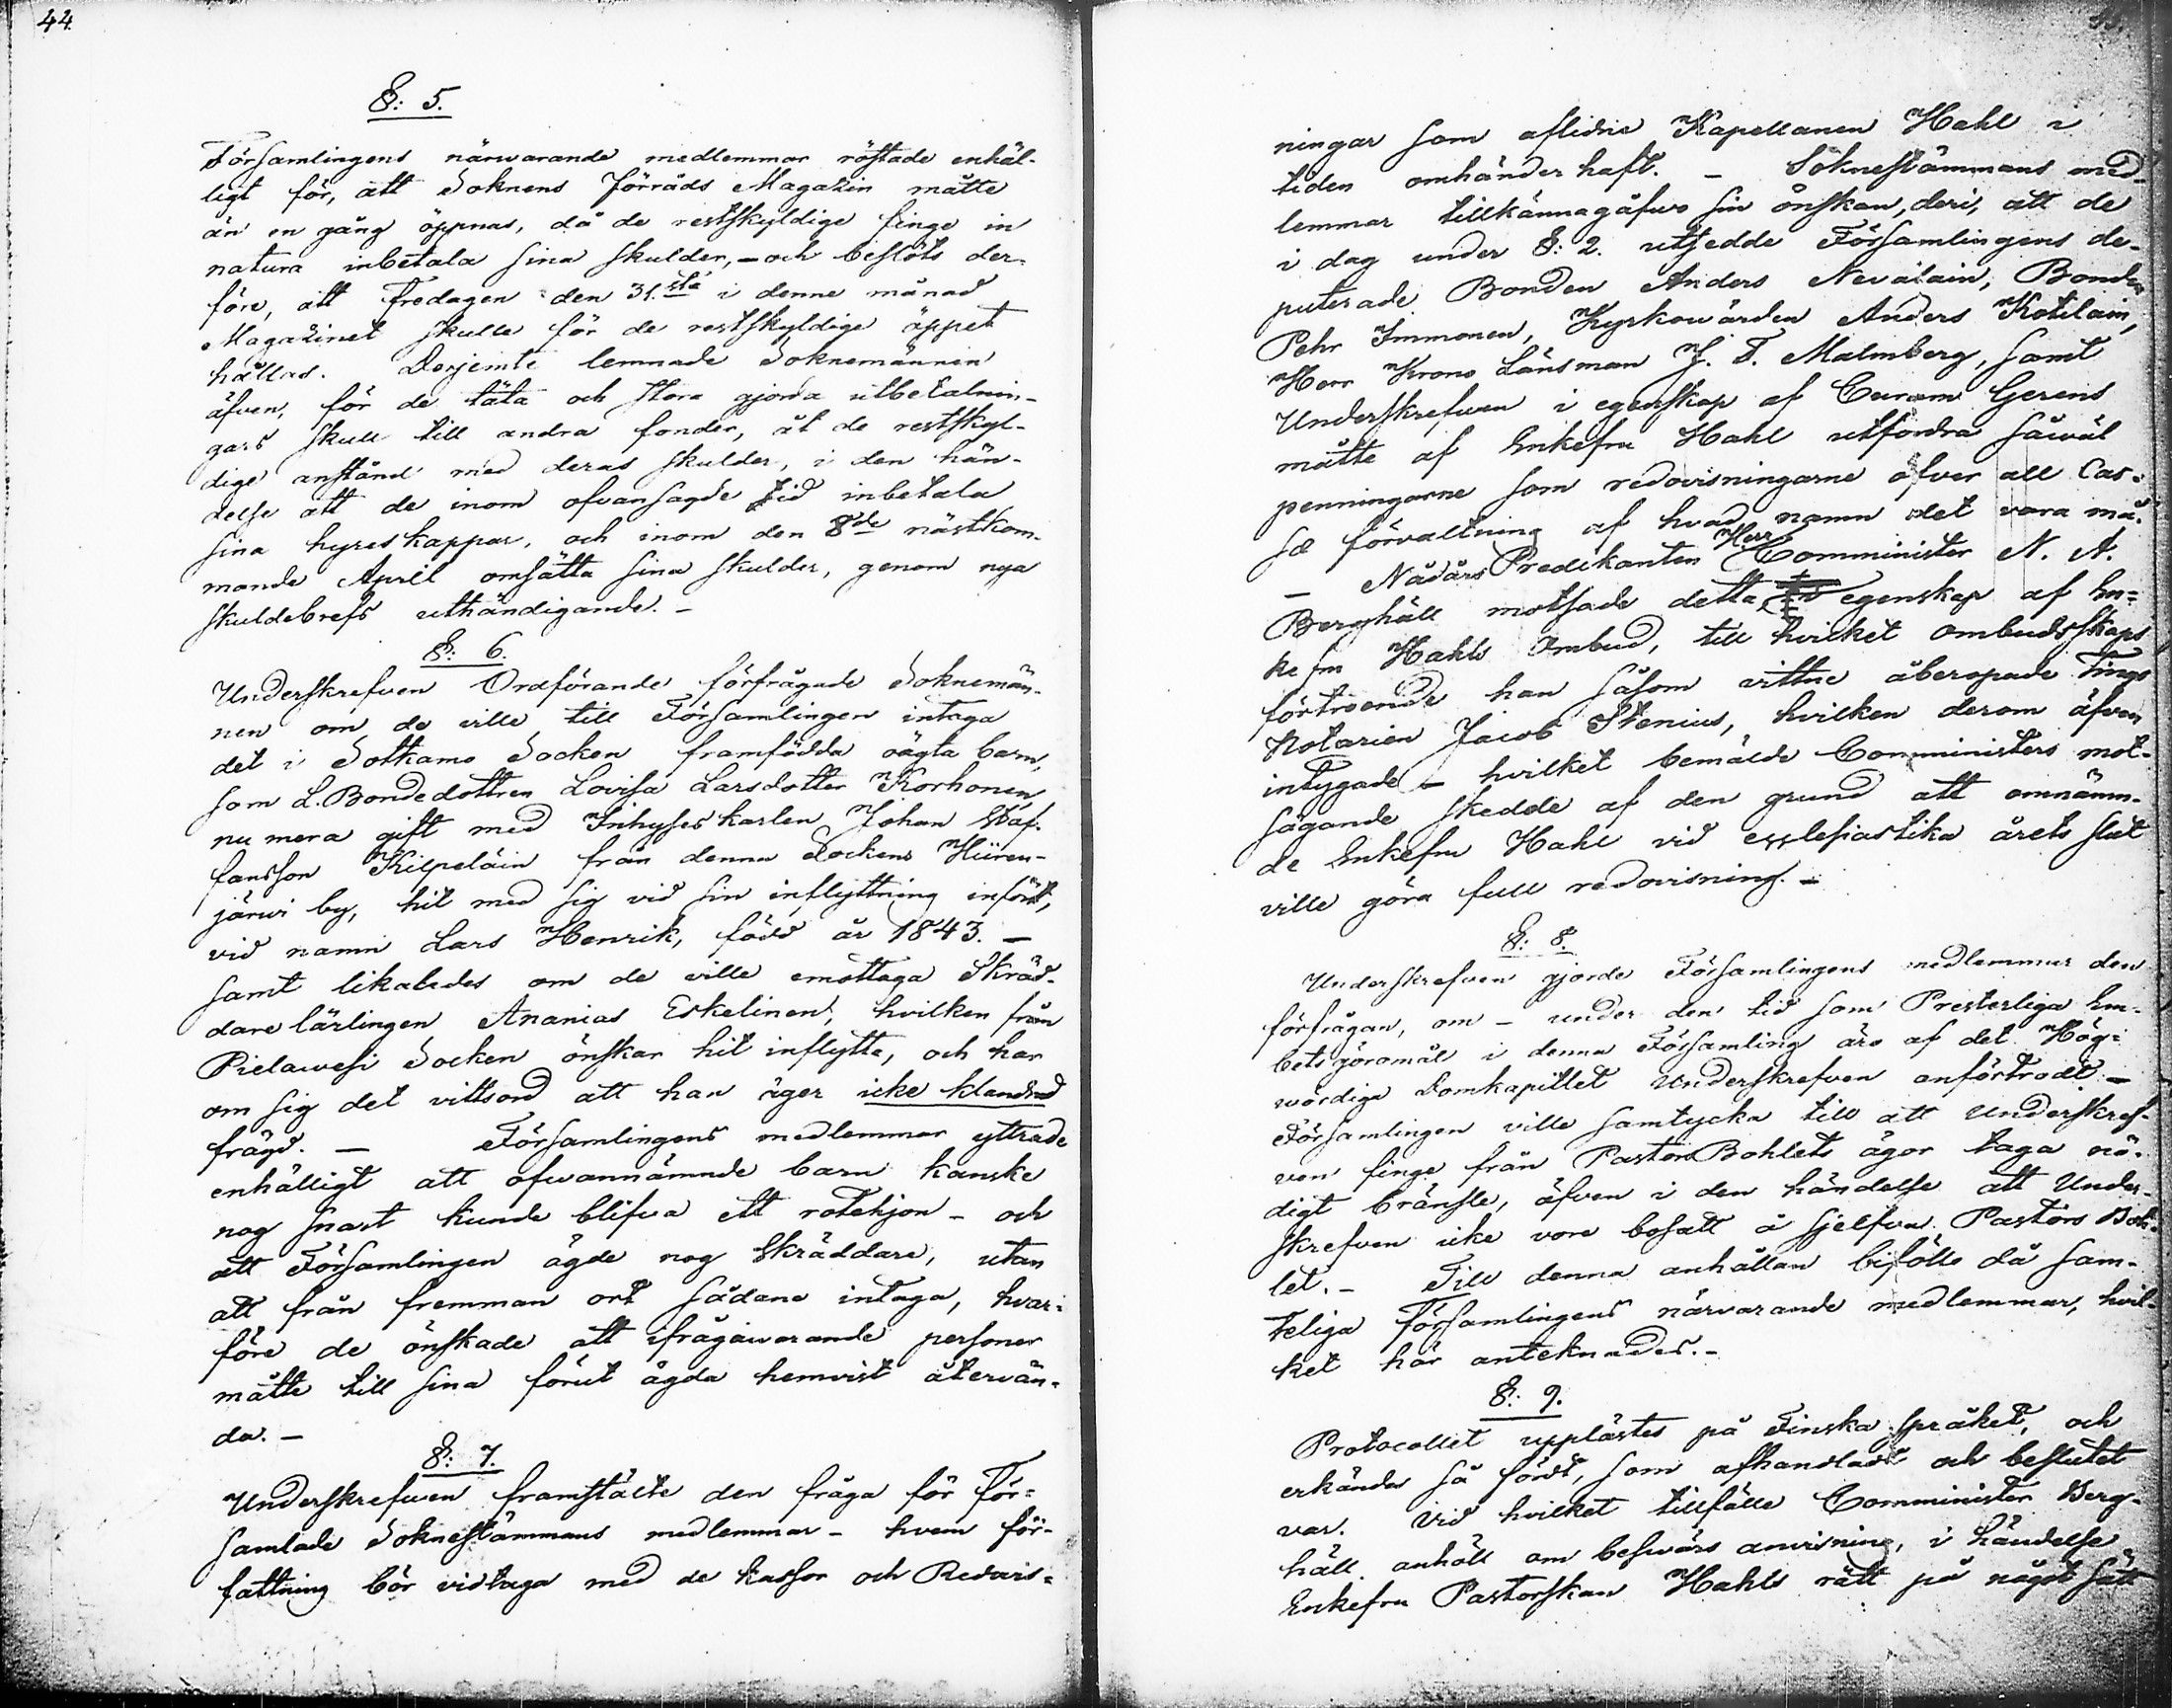 44.
§: 5.
Församlingens närwarande medlemmar röstade enhäl-
ligt för, att Soknens Förråds Magazin måtte
än en gång öppnas, då de restskyldige finge in
natura inbetala sina skulder, - och beslöts der-
före, att Fredagen den 31.sta i denne månad
Magazinet skulle för de restskyldige öppet
hållas. Derjemte lemnade Soknemännen
äfven, för de täta och stora gjorda utbetalnin-
gars skull till andra fonder, åt de restskyl-
dige anstånd med deras skulder, i den hän-
delse att de inom ofvansagde tid inbetala
sina hyreskappar, och inom den 8de nästkom-
mande April omsätta sina skulder, genom nya
skuldebrefs uthändigande. -
§: 6.
Underskrefven Ordförande förfrågade Soknemän-
nen om de ville till Församlingen intaga
det i Sotkamo Socken framfödda oägta barn,
som L. Bondedottren Lovisa Larsdotter Korhonen
nu mera gift med Inhyses karlen Johan Staf-
fansson Kilpeläin från denna Sockens Hiiren-
järwi by, hit med sig vid sin inflyttning infört,
vid namn Lars Henrik, född år 1843. -
samt likaledes om de ville emottaga Skräd-
dare lärlingen Ananias Eskelinen, hvilken från
Pielawesi Socken önskar hit inflytta, och har
om sig det vittsord att han äger icke klandrad
frägd. - Församlingens medlemmar yttrade
enhälligt att ofwannämnde barn kanske
nog snart kunde blifva ett rotehjon - och
att Församlingen ägde nog Skräddare, utan
att från fremman ort sådana intaga, hvar-
före de önskade att ifrågawarande personer
måtte till sina förut ägda hemvist återvän-
da. -
§: 7.
Underskrefwen framstälte den fråga för För-
samlade Soknestämmans medlemmar - hvem för-
fattning bör vidtaga med de kassor och Redovis-
ningar som aflidne Kapellanen Hahl i
tiden omhänderhaft. - Soknestämmans med-
lemmar tillkännagåfwo sin önskan, deri, att de
i dag under §: 2. utsedde Församlingens de-
puterade Bonden Anders Nevalain, Bonden
Pehr Immonen, Kyrkowärden Anders Kotilain,
Herr Krono Länsman J. F. Malmberg, samt
Underskrefwen i egenskap af Curam Gerens
måtte af Enkefru Hahl utfordra såwäl
penningarne som redovisningarne öfver all Cas-
sæ förvaltning af hvad namn det vara må.
- Nådårs Predikanten Herr Comminister N. A.
Berghäll motsade detta, i egenskap af En-
kefru Hahls Ombud, till hvilket ombudsskaps
förtroende han såsom vittne åberopade Tings
Notarien Jacob Stenius, hvilken derom äfven
intygade - hvilket bemälde Comministers mot-
sägande skedde af den grund att omnämn-
de Enkefru Hahl vid ecclesiastika årets slut
ville göra full redovisning. -
§: 8.
Underskrefven gjorde Församlingens medlemmar den
förfrågan, om - under den tid som Presterliga Em-
bets göromål i denna Församling äro af det Hög-
wördiga Domkapitlet Underskrefven anförtrodt -
Församlingen ville samtycka till att Underskref-
ven finge från Pastors Bohlets ägor taga nö-
digt bränsle, äfven i den händelse att Under-
skrefven icke vore bosatt å sjelfva Pastors Boh-
let. - Till denna anhållan biföllo då sam-
teliga Församlingens närvarande medlemmar, hvil-
ket här antecknades. -
§: 9.
Protocollet upplästes på Finska språket, och
erkändes så fördt, som afhandladt och beslutet
var. Vid hvilket tillfälle Comminister Berg-
häll anhöll om besvärs anvisning, i händelse
Enkefru Pastorskan Hahls rätt på något sätt